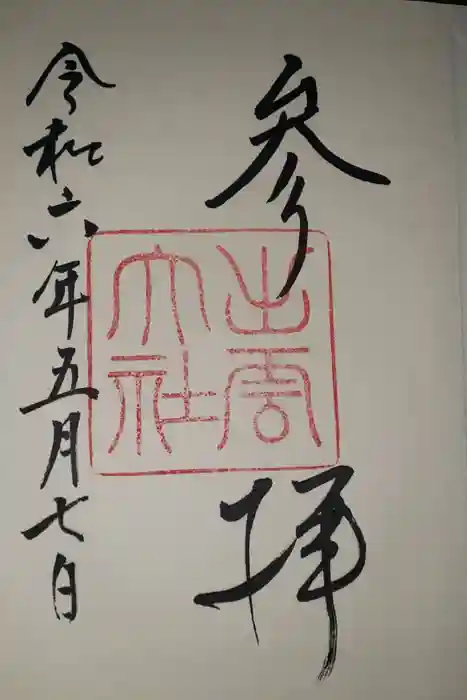 参拝
出雲
大社
令和六年五月七日